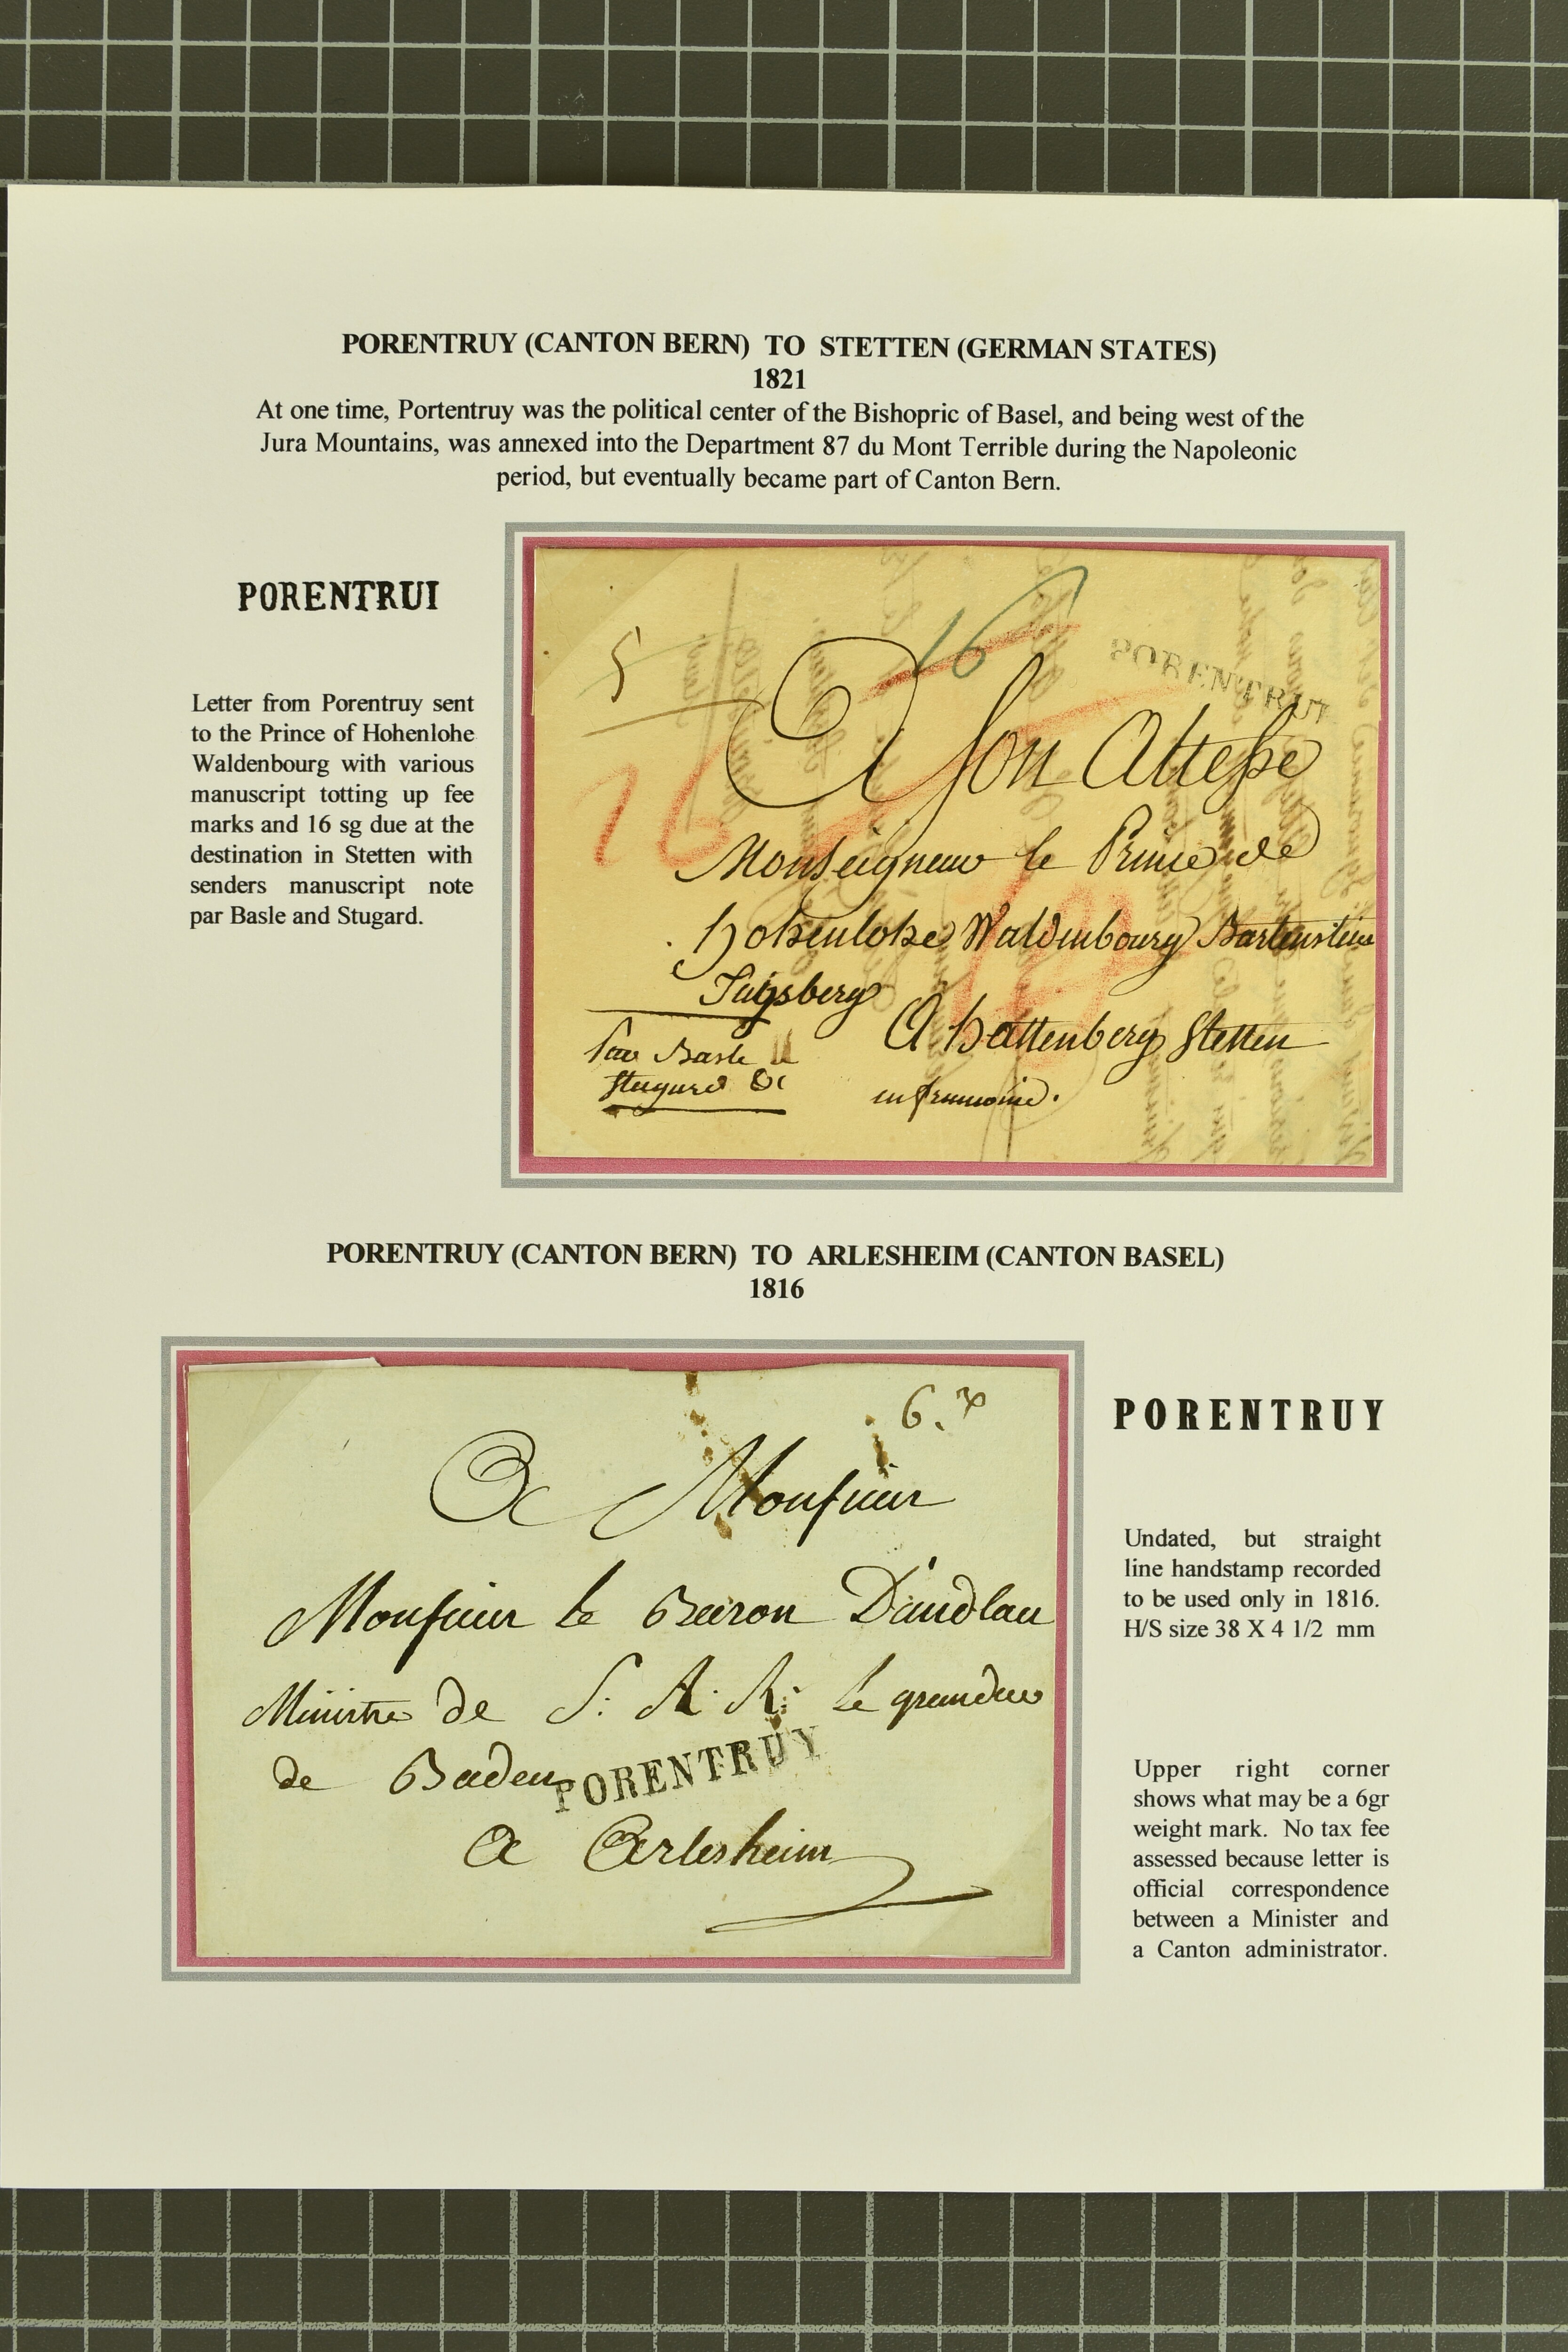 PORENTRUY (CANTON BERN) TO STETTEN (GERMAN STATES)
1821
At one time, Portentruy was the political center of the Bishopric of Basel, and being west of the
Jura Mountains, was annexed into the Department 87 du Mont Terrible during the Napoleonic
period, but eventually became part of Canton Bern.
PORENTRUI
Letter from Porentruy sent
to the Prince of Hohenlohe
Waldenbourg with various
manuscript totting up fee
marks and 16 sg due at the
destination in Stetten with
senders manuscript note
par Basle and Stugard.
5
16
PORENTRUI
A Son Altesse
16
Monseigneur le Prince de
hohenlohe Waldenbourg Bartenstein
Jagsberg
A hattenberg Stetten
par Basle
Stugard &c
en franconie.
PORENTRUY (CANTON BERN) TO ARLESHEIM (CANTON BASEL)
1816
6.
A Monsieur
Monsieur le Baron D'andlau
Ministre de S. A. R. le grand duc
de Baden
PORENTRUY
a Arlesheim
PORENTRUY
Undated, but straight
line handstamp recorded
to be used only in 1816.
H/S size 38 X 4 1/2 mm
Upper right corner
shows what may be a 6gr
weight mark. No tax fee
assessed because letter is
official correspondence
between a Minister and
a Canton administrator.